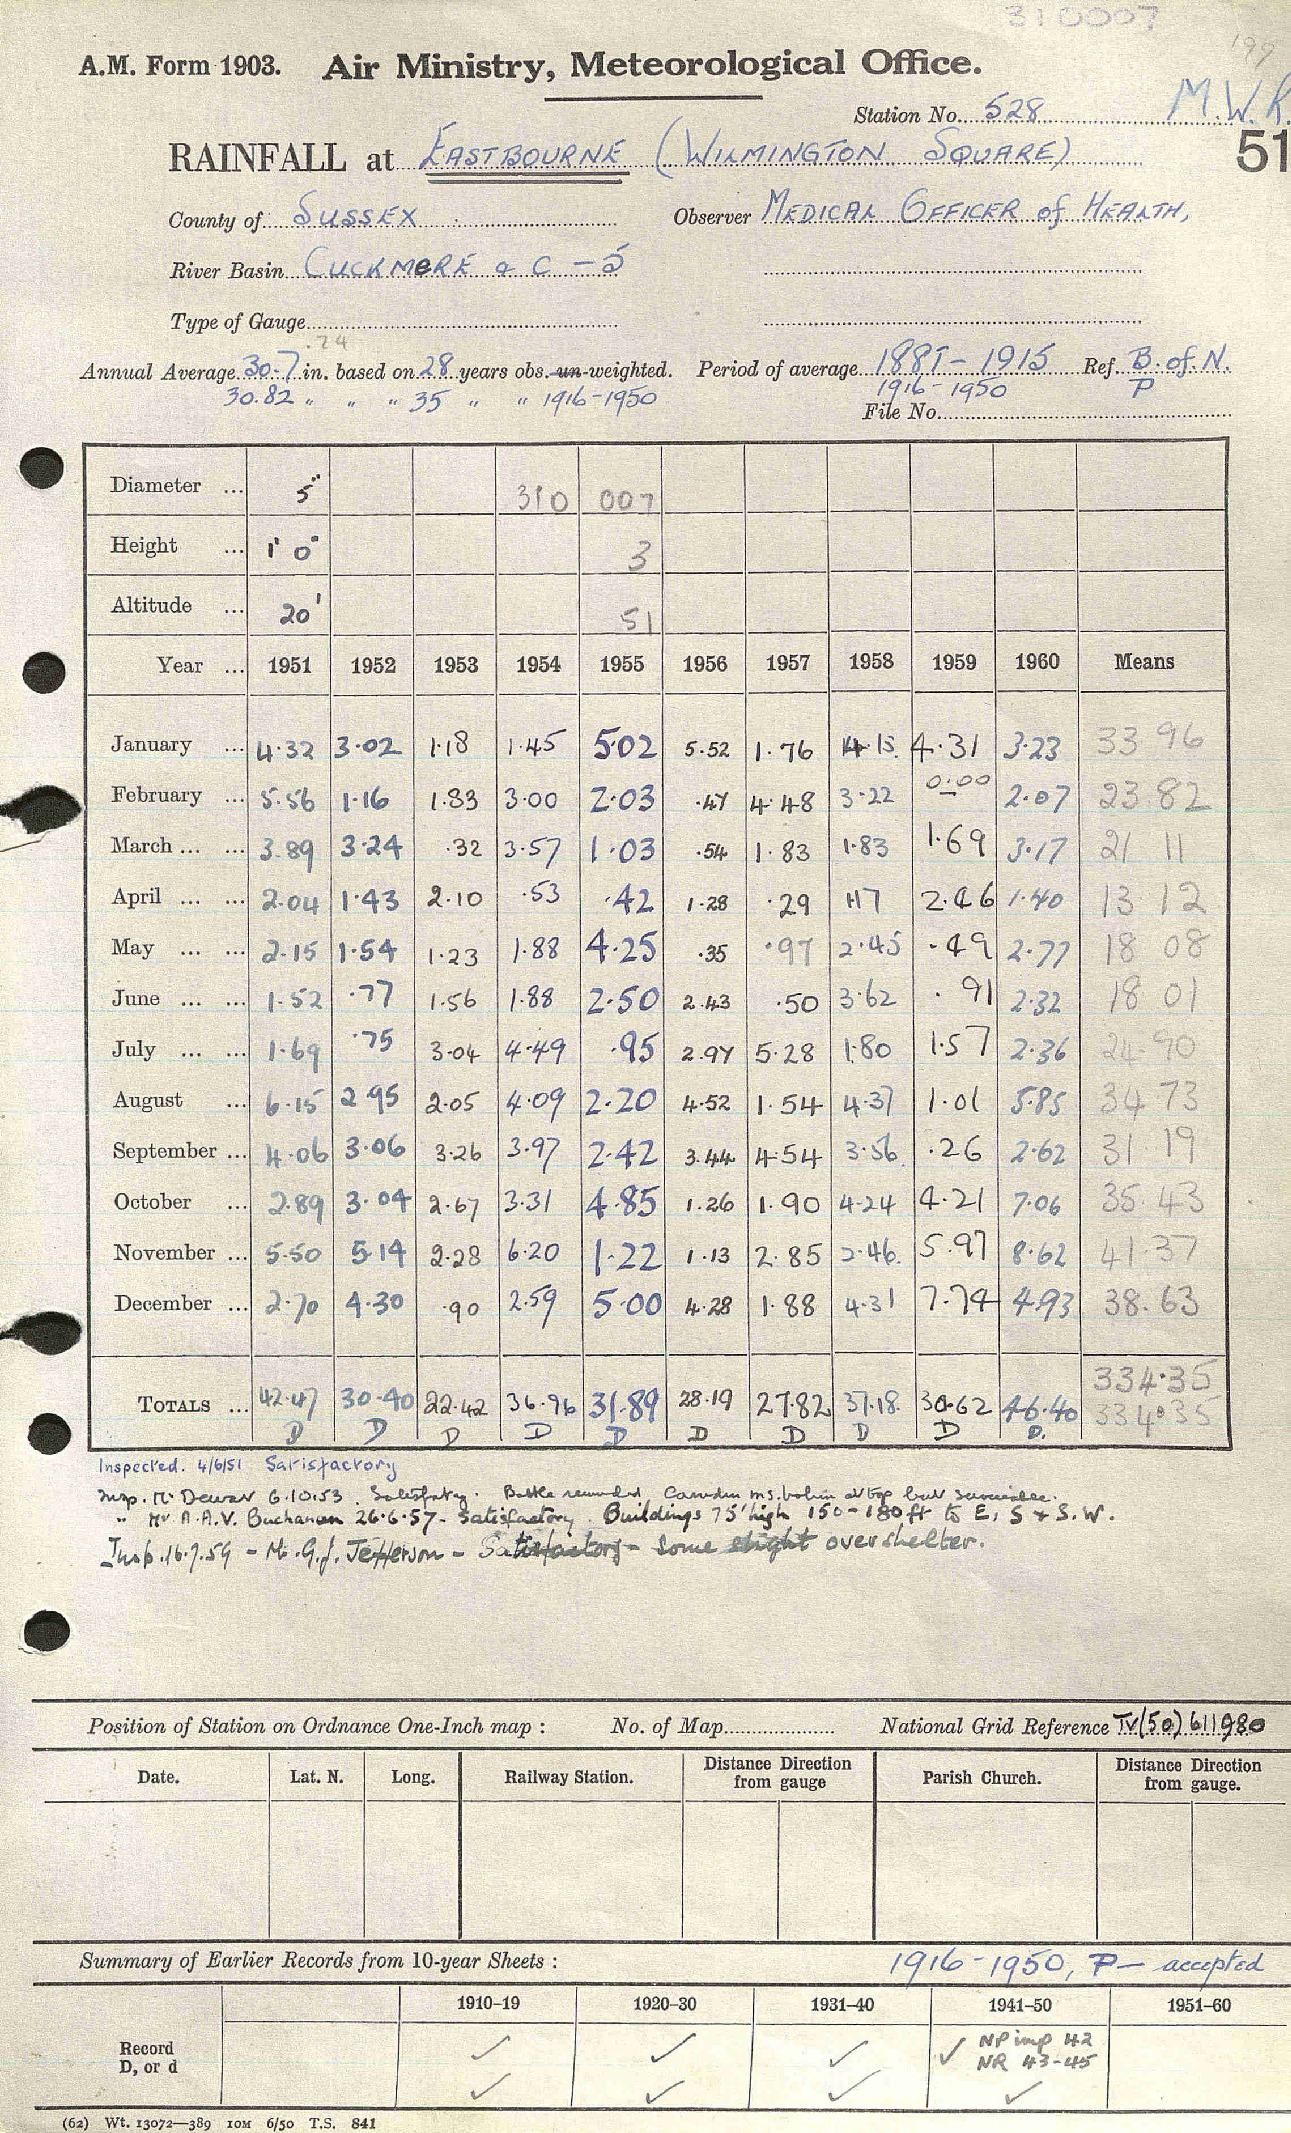 310007
199
A.M. Form 1903. Air Ministry, Meteorological Office.
Station No. 528 M.W.R.
51
RAINFALL at EASTBOURNE (WILMINGTON SQUARE)
County of SUSSEX Observer MEDICAL OFFICER of HEALTH,
River Basin CUCKMERE & C - 5
Type of Gauge
.74
Annual Average 30.7 in. based on 28 years obs. un-weighted. Period of average 1881-1915 Ref. B. of. N.
30.82 " " " 35 " " 1916-1950 1916-1950 P
File No.
Diameter ... 5" 310 007
Height ... 1' 0" 3
Altitude ... 20' 51
Year ... 1951 1952 1953 1954 1955 1956 1957 1958 1959 1960 Means
January ... 4.32 3.02 1.18 1.45 5.02 5.52 1.76 4.15 4.31 3.23 33 96
February ... 5.56 1.16 1.83 3.00 2.03 .47 4.48 3.22 0.00 2.07 23.82
March ... ... 3.89 3.24 .32 3.57 1.03 .54 1.83 1.83 1.69 3.17 21 11
April ... ... 2.04 1.43 2.10 .53 .42 1.28 .29 1.17 2.46 1.40 13 12
May ... ... 2.15 1.54 1.23 1.88 4.25 .35 .97 2.45 .49 2.77 18 08
June ... ... 1.52 .77 1.56 1.88 2.50 2.43 .50 3.62 .91 2.32 18 01
July ... ... 1.69 .75 3.04 4.49 .95 2.97 5.28 1.80 1.57 2.36 24.90
August ... 6.15 2.95 2.05 4.09 2.20 4.52 1.54 4.37 1.01 5.85 34 73
September ... 4.06 3.06 3.26 3.97 2.42 3.44 4.54 3.56 .26 2.62 31 19
October ... 2.89 3.04 2.67 3.31 4.85 1.26 1.90 4.24 4.21 7.06 35.43
November ... 5.50 5.14 2.28 6.20 1.22 1.13 2.85 2.46 5.97 8.62 41 37
December ... 2.70 4.30 .90 2.59 5.00 4.28 1.88 4.31 7.74 4.93 38.63
334.35
TOTALS ... 42.47 30.40 22.42 36.96 31.89 28.19 27.82 37.18 30.62 46.40 334.35
D D D D D D D D D D.
Inspected. 4/6/51 Satisfactory
Insp. Mr Dewar 6.10.53. Satisfactory. Bottle recorded Camden ms. at top but serviceable.
" Mr. A.A.V. Buchanan 26.6.57- Satisfactory. Buildings 75' high 150-180ft to E, S & S.W.
Insp. 16.9.59 - Mr. G.J. Jefferson - Satisfactory - some slight overshelter.
Position of Station on Ordnance One-Inch map : No. of Map National Grid Reference TV(50) 611980
Date. Lat. N. Long. Railway Station. Distance Direction from gauge Parish Church. Distance Direction from gauge.
Summary of Earlier Records from 10-year Sheets : 1916-1950, P - accepted
1910-19 1920-30 1931-40 1941-50 1951-60
Record D, or d ✓ ✓ ✓ ✓ NP imp 42
NR 43-45
✓ ✓ ✓ ✓
(62) Wt. 13072—389 10M 6/50 T.S. 841